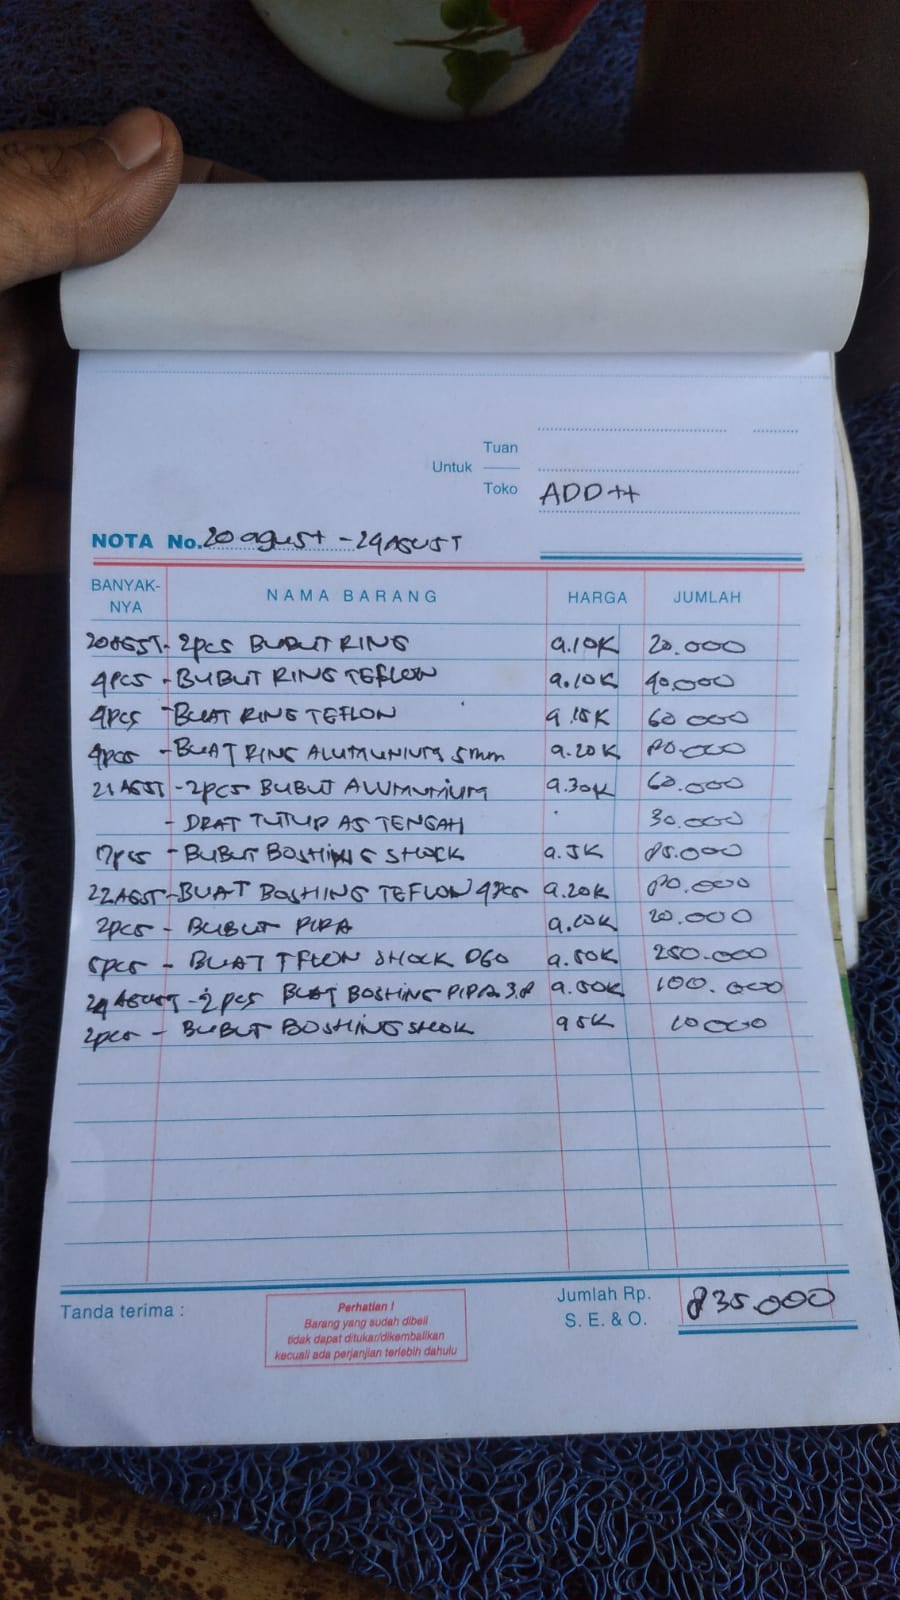 Tuan
Untuk
Toko ADD++
NOTA No. 20 agust - 24 AGUST
BANYAK-NYA NAMA BARANG HARGA JUMLAH
20 AGST - 2pcs BUBUT RING a.10K 20.000
4pcs - BUBUT RING TEFLON a.10K 40.000
4pcs - BUAT RING TEFLON a.15K 60.000
4pcs - BUAT RING ALUMUNIUM 5mm a.20K 80.000
21 AGST - 2pcs BUBUT ALUMUNIUM a.30K 60.000
- DRAT TUTUP AS TENGAH 30.000
pcs - BUBUT BOSHING SHOCK a.5K 85.000
22 AGST - BUAT BOSHING TEFLON 4pcs a.20K 80.000
2pcs - BUBUT PIPA a.10K 20.000
5pcs - BUAT TFLON SHOCK D60 a.50K 250.000
24 AGUST - 2pcs BUAT BOSHING PIPA 3.8 a.50K 100.000
2pcs - BUBUT BOSHING SHOK a5K 10000
Tanda terima :
Perhatian !
Barang yang sudah dibeli
tidak dapat ditukar/dikembalikan
kecuali ada perjanjian terlebih dahulu
Jumlah Rp. 835.000
S. E. & O.